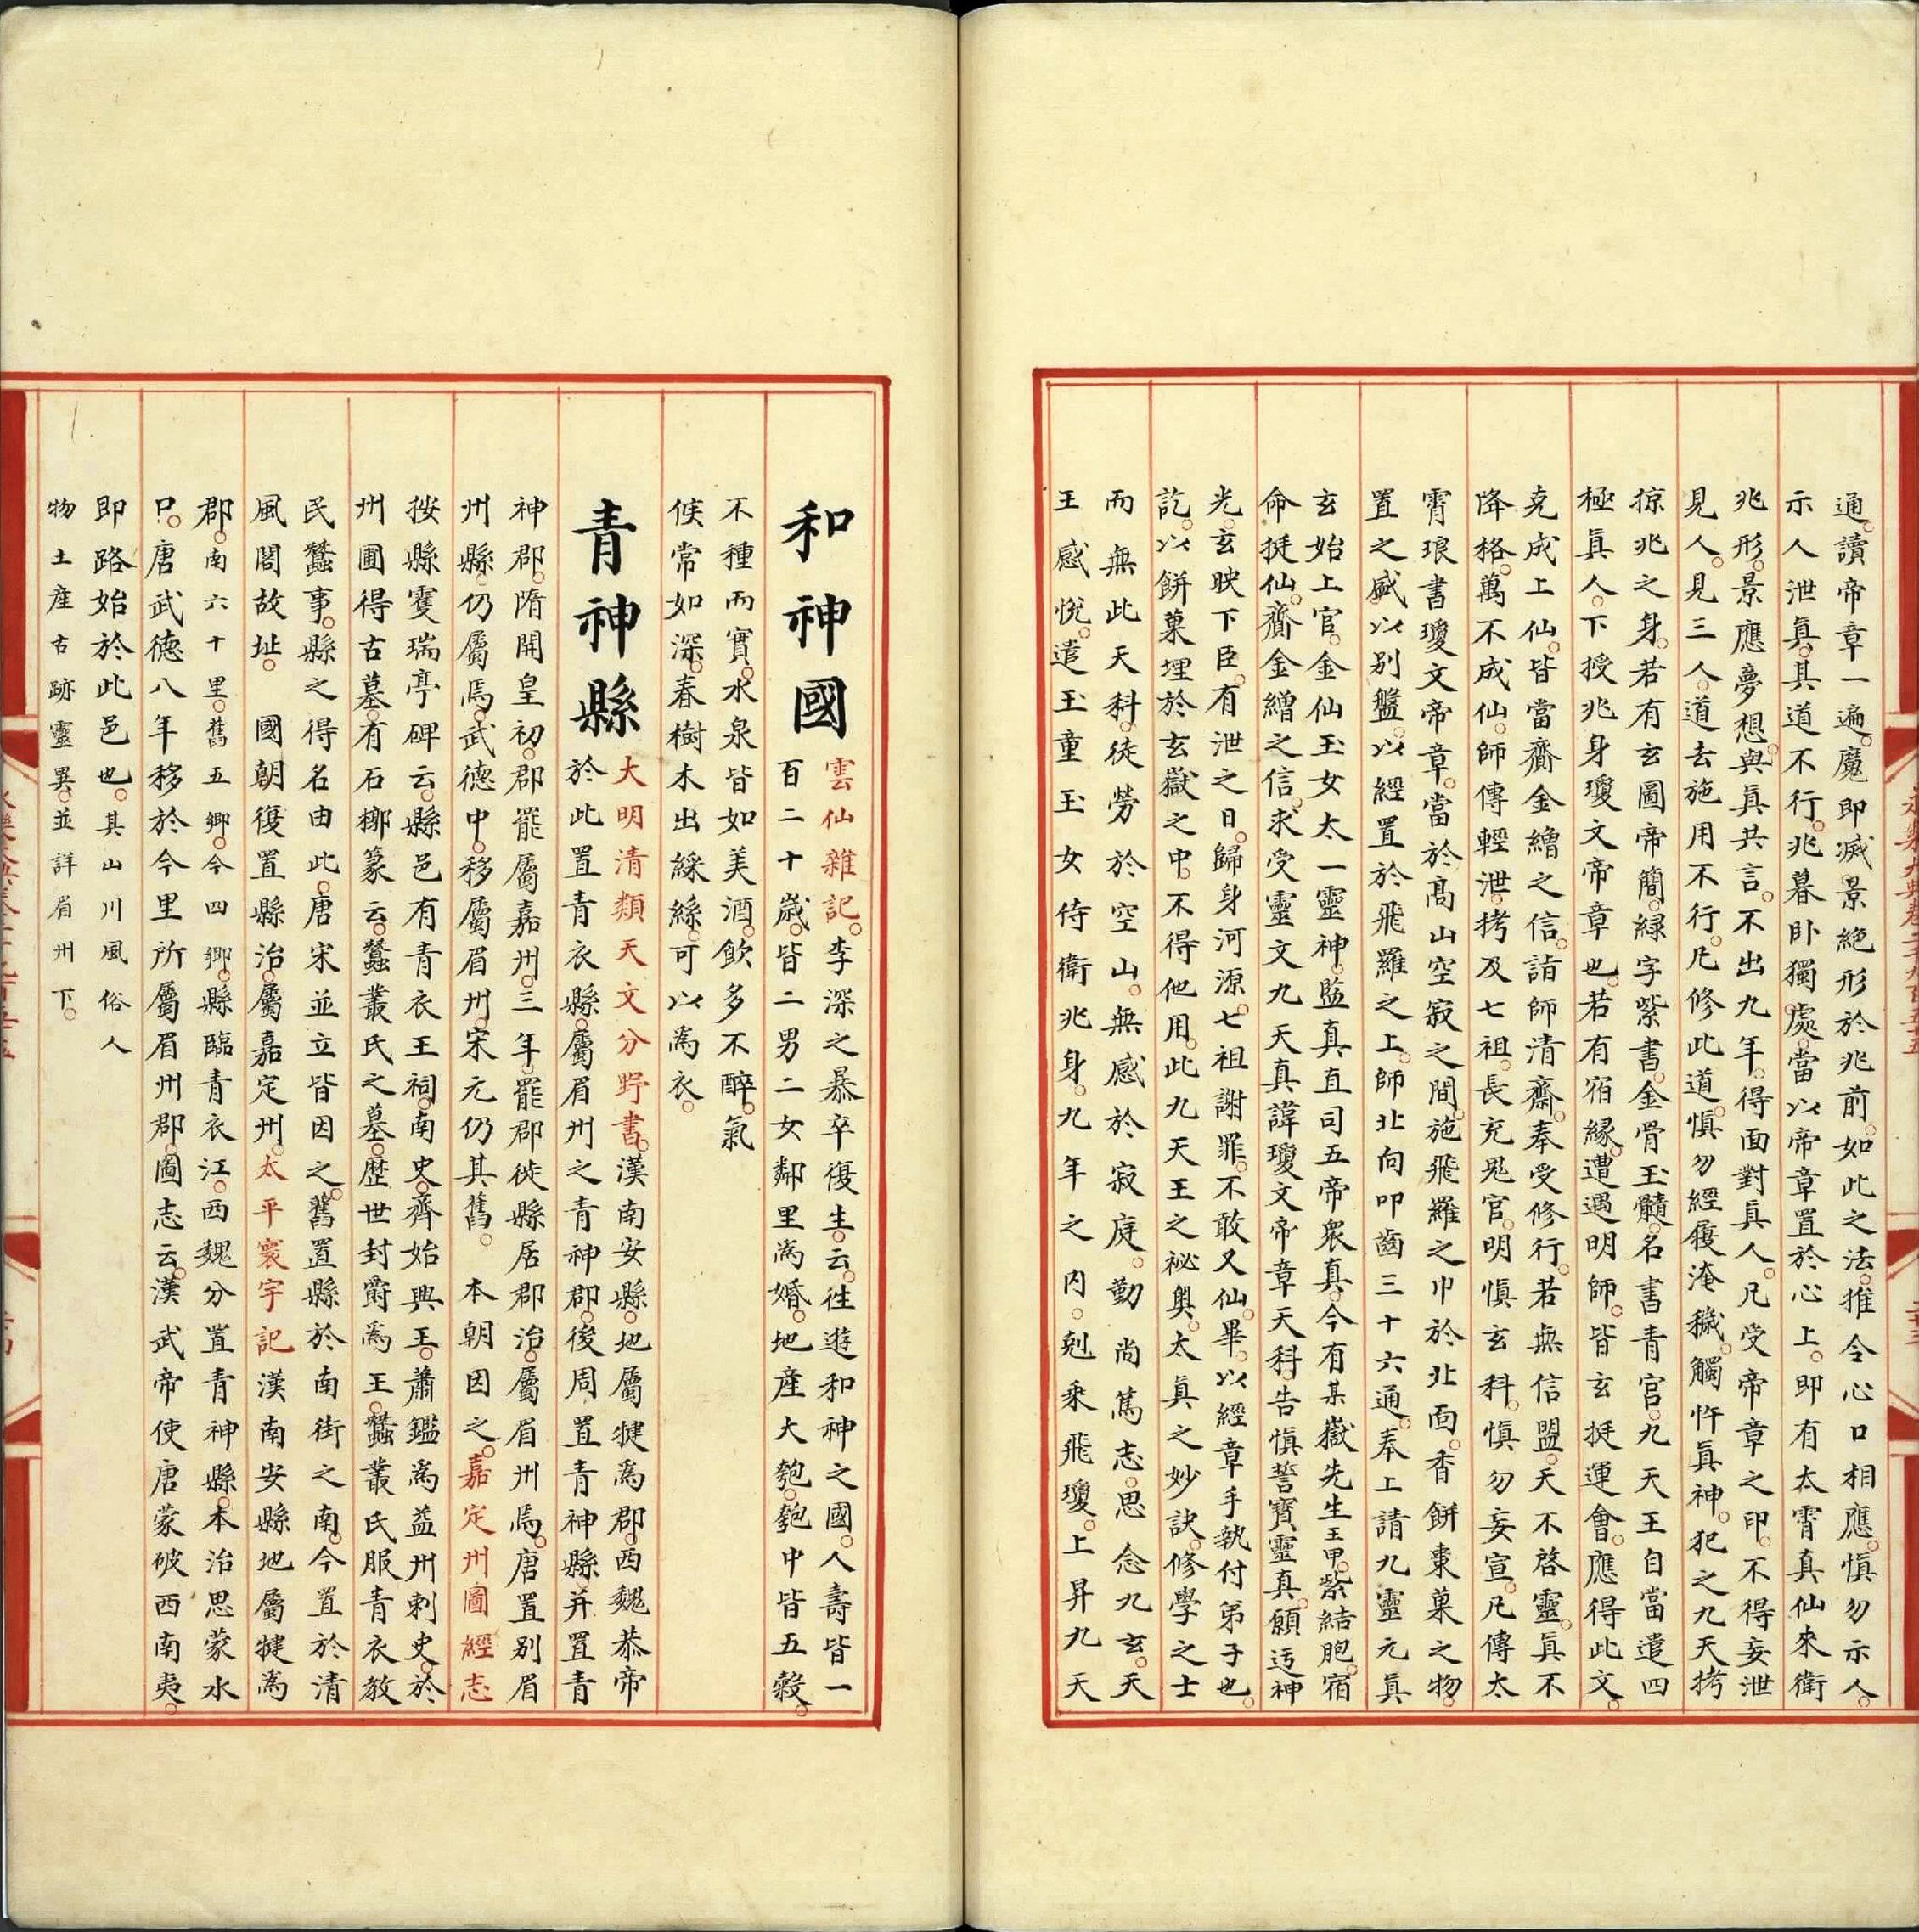 通。讀帝章一遍。魔即滅景絶形於兆前。如此之法。推令心口相應。慎勿示人。
示人泄真。其道不行。兆暮卧獨處。當以帝章置於心上。即有太霄真仙來衛
兆形。景應夢想。與真共言。不出九年。得面對真人。凡受帝章之印。不得妄泄
見人。見三人。道去施用不行。凡修此道。慎勿經履淹穢。觸忤真神。犯之九天拷
掠兆之身。若有玄圖帝簡。緑字紫書。金骨玉髓。名書青官。九天王自當遣四
極真人。下授兆身瓊文帝章也。若有宿縁。遭遇明師。皆玄挺運會。應得此文。
克成上仙。皆當齎金繒之信。詣師清齋。奉受修行。若無信盟。天不啓靈。真不
降格。萬不成仙。師傳輕泄。拷及七祖。長充鬼官。明慎玄科。慎勿妄宣。凡傳太
霄琅書瓊文帝章。當於髙山空寂之間。施飛羅之巾於北面。香餅棗菓之物。
置之盛以别盤。以經置於飛羅之上。師北向叩齒三十六通。奉上請九靈元真
玄始上官。金仙玉女太一靈神。監真直司五帝衆真。今有某嶽先生王甲。紫結胞。宿
命挺仙。齎金繒之信。求受靈文九天真諱瓊文帝章天科。告慎誓寶靈真。願迄神
光。玄映下臣。有泄之日。歸身河源。七祖謝罪。不敢又仙。畢。以經章手執付弟子也。
訖。以餅菓埋於玄嶽之中。不得他用。此九天王之祕奥。太真之妙訣。修學之士
而無此天科。徒勞於空山。無感於寂庭。勤尚篤志。思念九玄。天
王感悅。遣玉童玉女侍衛兆身。九年之内。剋乘飛瓊。上昇九天
和神國 雲仙雜記。李深之暴卒復生。云。往遊和神之國。人壽皆一
百二十歲。皆二男二女。鄰里為婚。地産大匏。匏中皆五穀。
不種而實。水泉皆如美酒。飲多不醉。氣
候常如深。春樹木出綵絲。可以為衣。
青神縣 大明清類天文分野書。漢南安縣。地屬犍為郡。西魏恭帝
於此置青衣縣。屬眉州之青神郡。後周置青神縣。并置青
神郡。隋開皇初。郡罷屬嘉州。三年。罷郡徙縣居郡治。屬眉州焉。唐置别眉
州縣。仍屬焉。武德中。移屬眉州。宋元仍其舊。 本朝因之。嘉定州圖經志
按縣雙瑞亭碑云。縣邑有青衣王祠。南史。齊始興王。蕭鑑為益州刺史。於
州圃得古墓。有石槨篆云。蠶叢氏之墓。歴世封爵為王。蠶叢氏服青衣教
民蠶事。縣之得名由此。唐宋並立皆因之。舊置縣於南街之南。今置於清
風閣故址。 國朝復置縣治。屬嘉定州。太平寰宇記漢南安縣地屬犍為
郡。南六十里。舊五鄉。今四鄉。縣臨青衣江。西魏分置青神縣。本治思蒙水
口。唐武德八年移於今里所屬眉州郡。圖志云。漢武帝使唐蒙破西南夷。
即路始於此邑也。其山川風俗人
物土産古跡靈異。並詳眉州下。